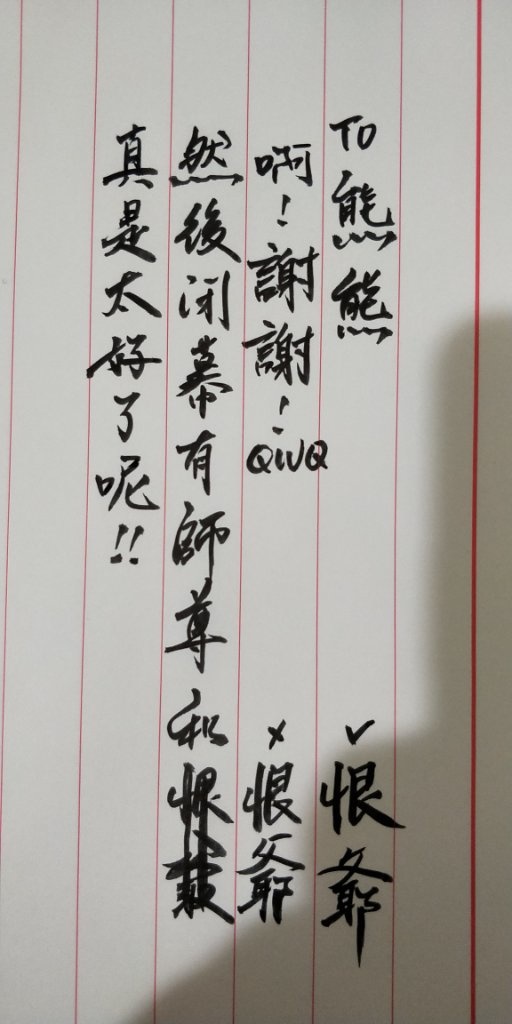 TO 熊熊
啊！謝謝！QWQ
然後闭幕有師尊和
真是太好了呢!!
✓恨爺
×恨爺